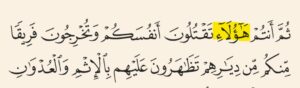 ثُمَّ أَنتُمْ هَٰٓؤُلَآءِ تَقْتُلُونَ أَنفُسَكُمْ وَتُخْرِجُونَ فَرِيقًا
مِّنكُم مِّن دِيَٰرِهِمْ تَظَٰهَرُونَ عَلَيْهِم بِٱلْإِثْمِ وَٱلْعُدْوَٰنِ